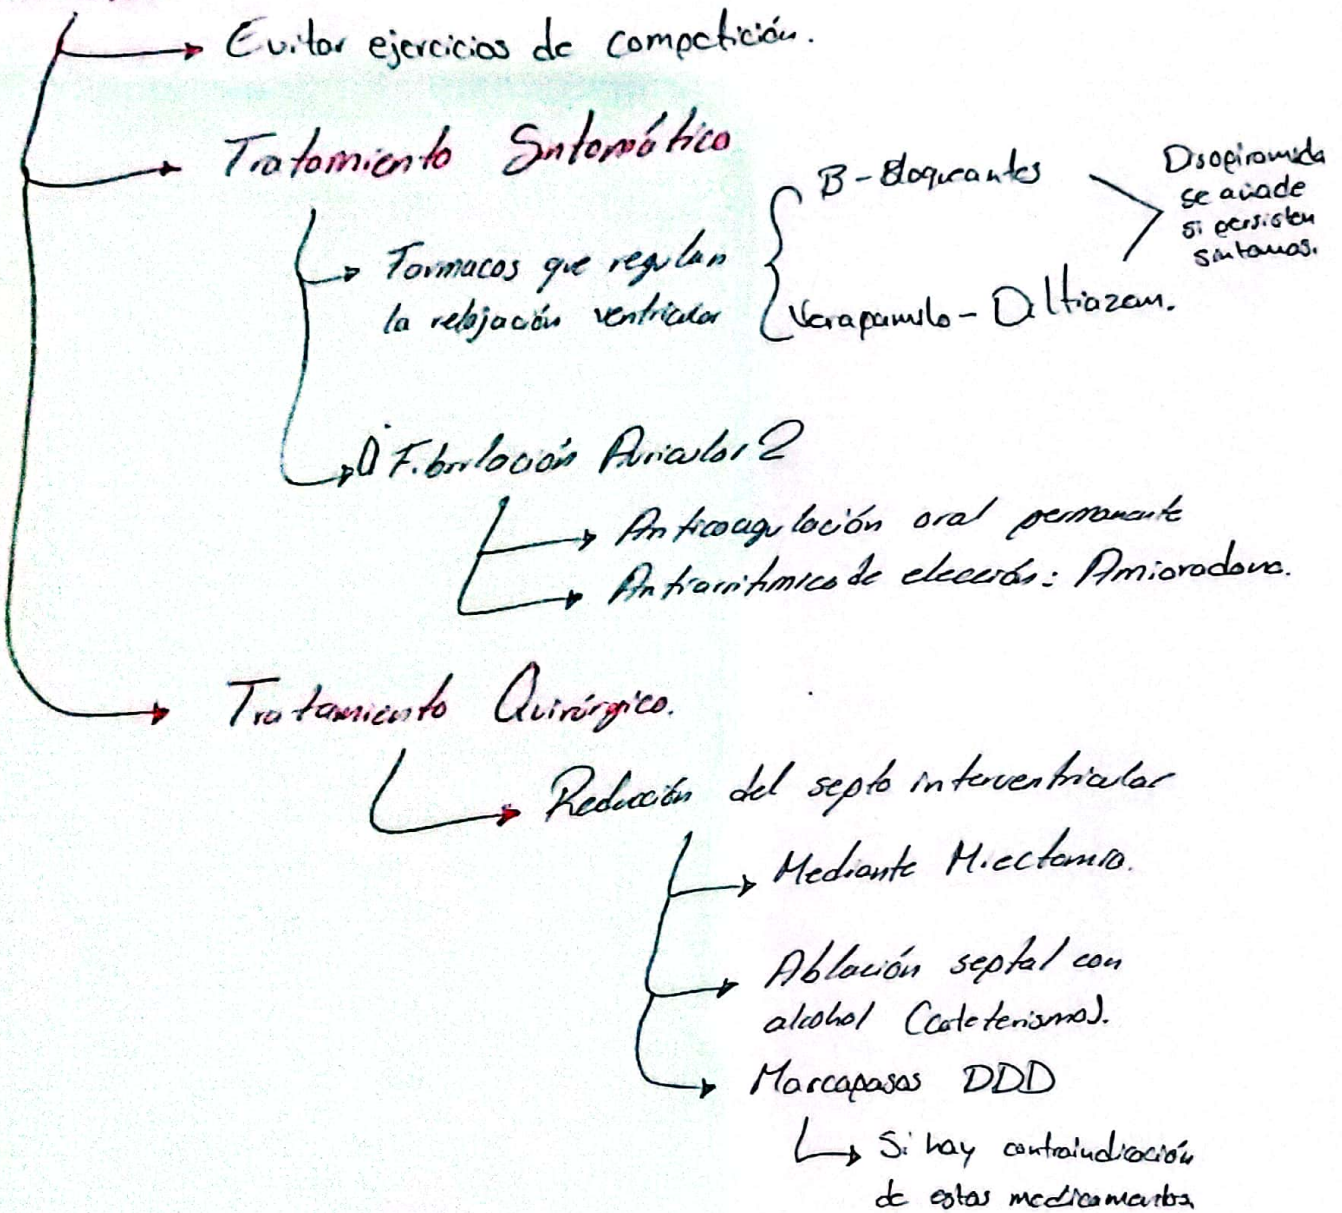 Evitar ejercicios de competición.
Tratamiento Sintomático
Farmacos que regulan
la relajación ventricular
B-Bloqueantes
Verapamilo - Diltiazem.
Disopiramida
se añade
si persisten
sintomas.
¿Fibrilación Auricular?
Anticoagulación oral permanente
Antiarritmico de elección: Amioradona.
Tratamiento Quirúrgico.
Reducción del septo interventricular
Mediante Miectomia.
Ablación septal con
alcohol (cateterismo).
Marcapasos DDD
Si hay contraindicación
de estos medicamentos